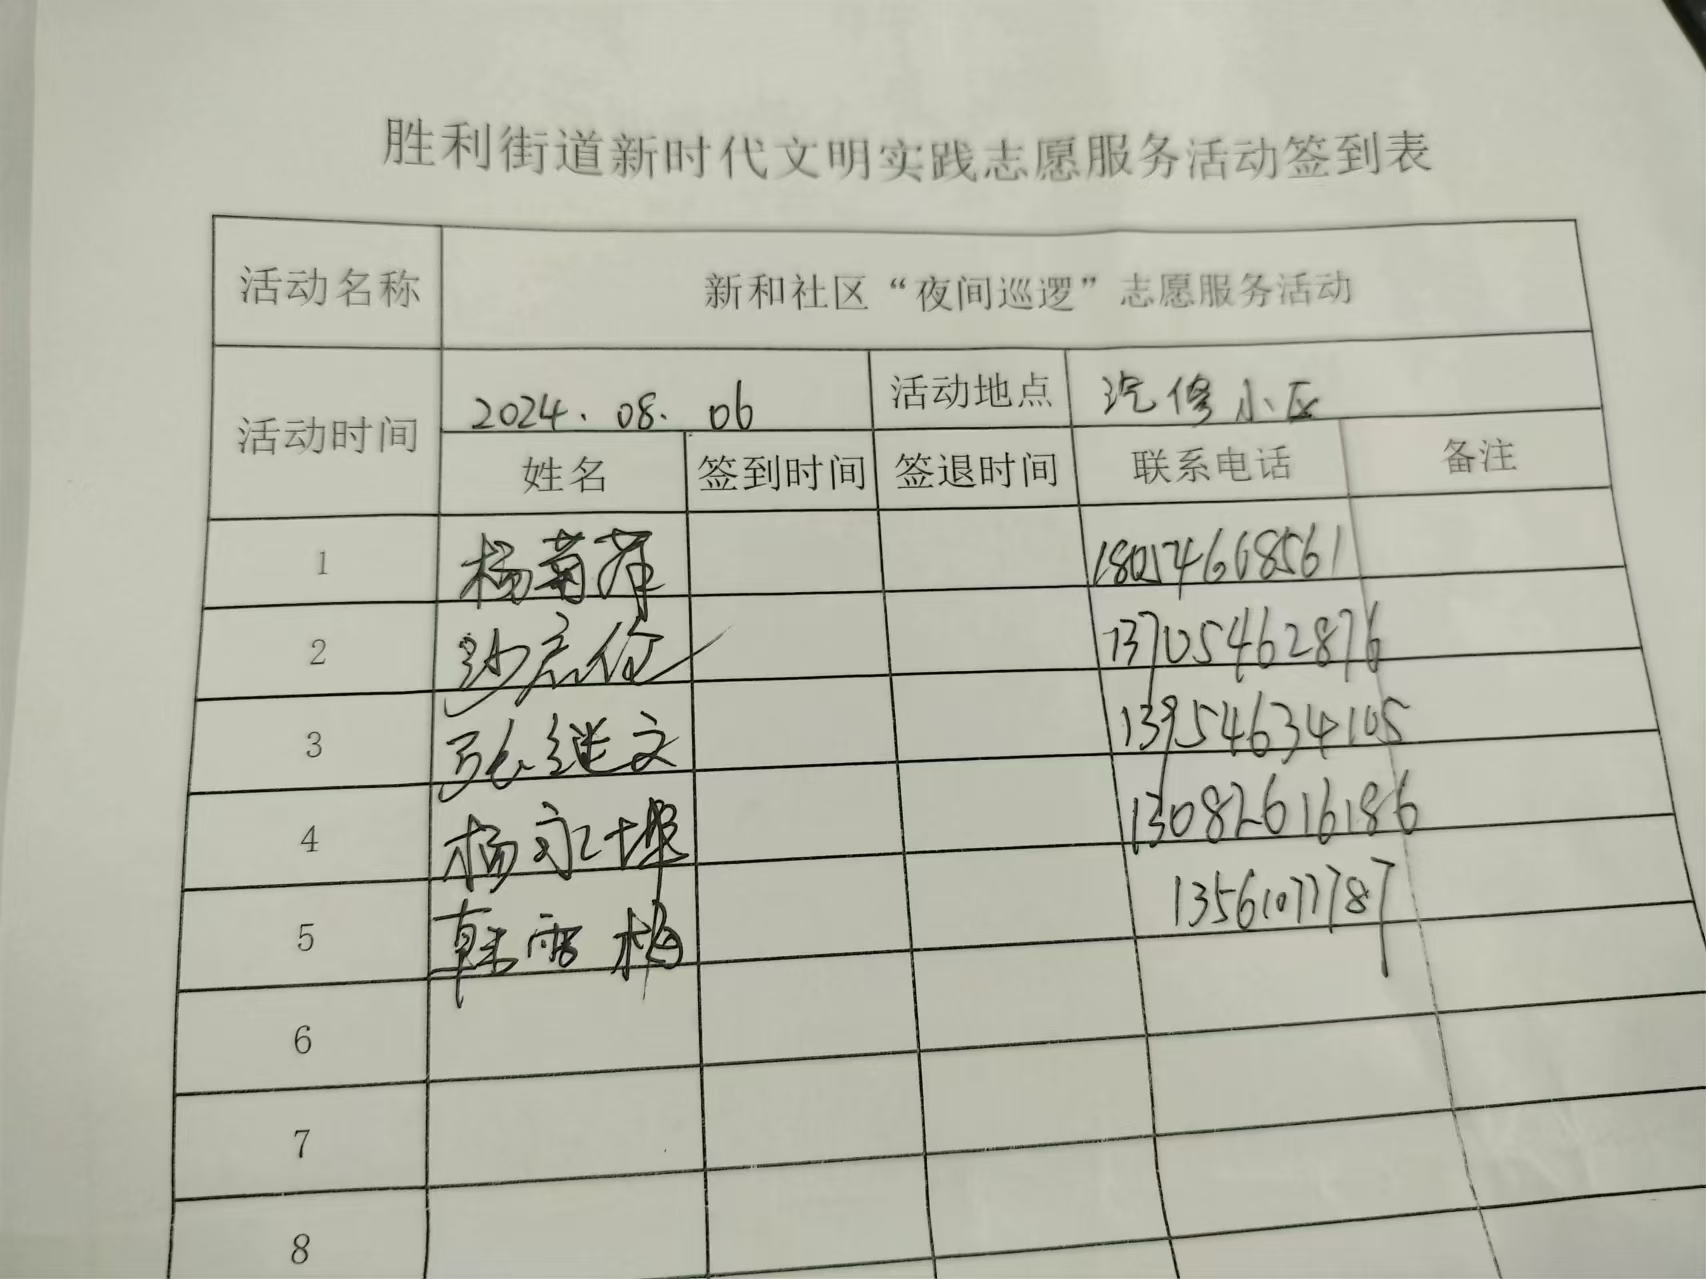 胜利街道新时代文明实践志愿服务活动签到表
活动名称 新和社区“夜间巡逻”志愿服务活动
活动时间 2024.08.06 活动地点 汽修小区
姓名 签到时间 签退时间 联系电话 备注
1 杨菊萍 18054608561
2 13705462876
3 张继文 13954634105
4 杨永 13082616186
5 韩雪梅 13561077787
6
7
8